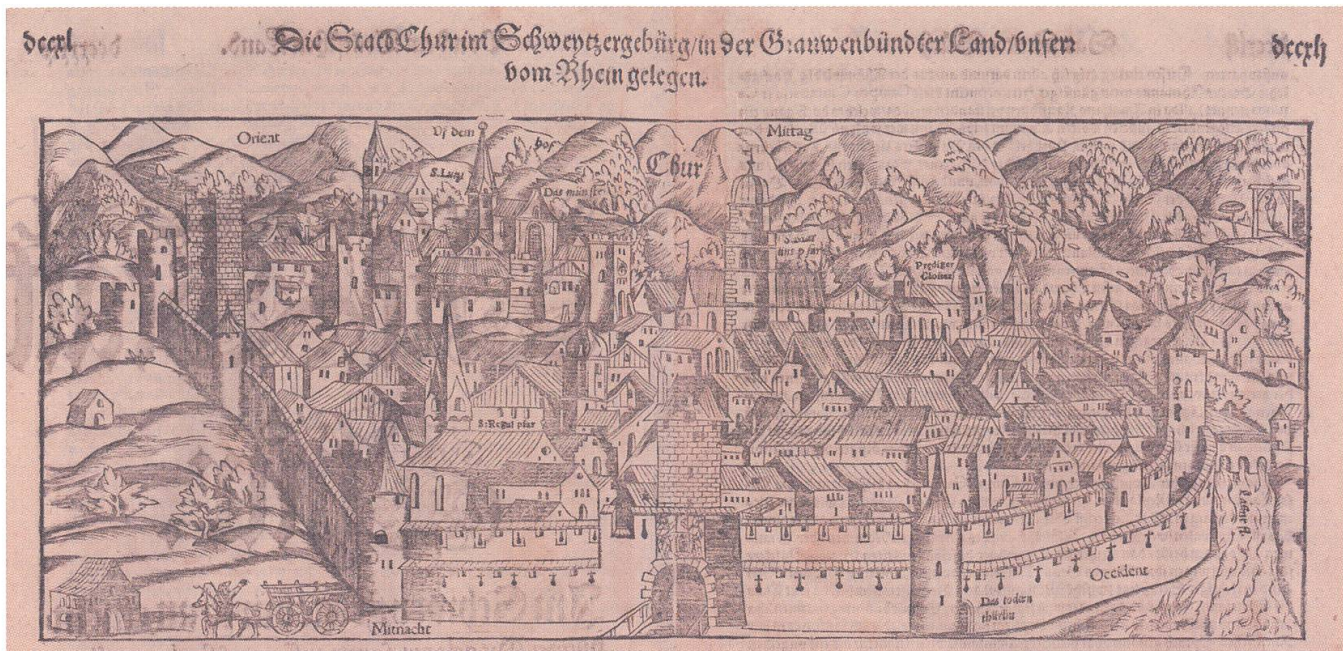 dccxl
Die Statt Chur im Schweytzergebürg/in der Grauwenbündter Land/vnferr
dccxlj
vom Rhein gelegen.
Orient
Vf dem
hof
Mittag
S. Lucj
Das münster
Chur
S. mar
tins pfar
Prediger
Closter
S. Regul pfar
Occident
Das todten
thürlin
Mitnacht